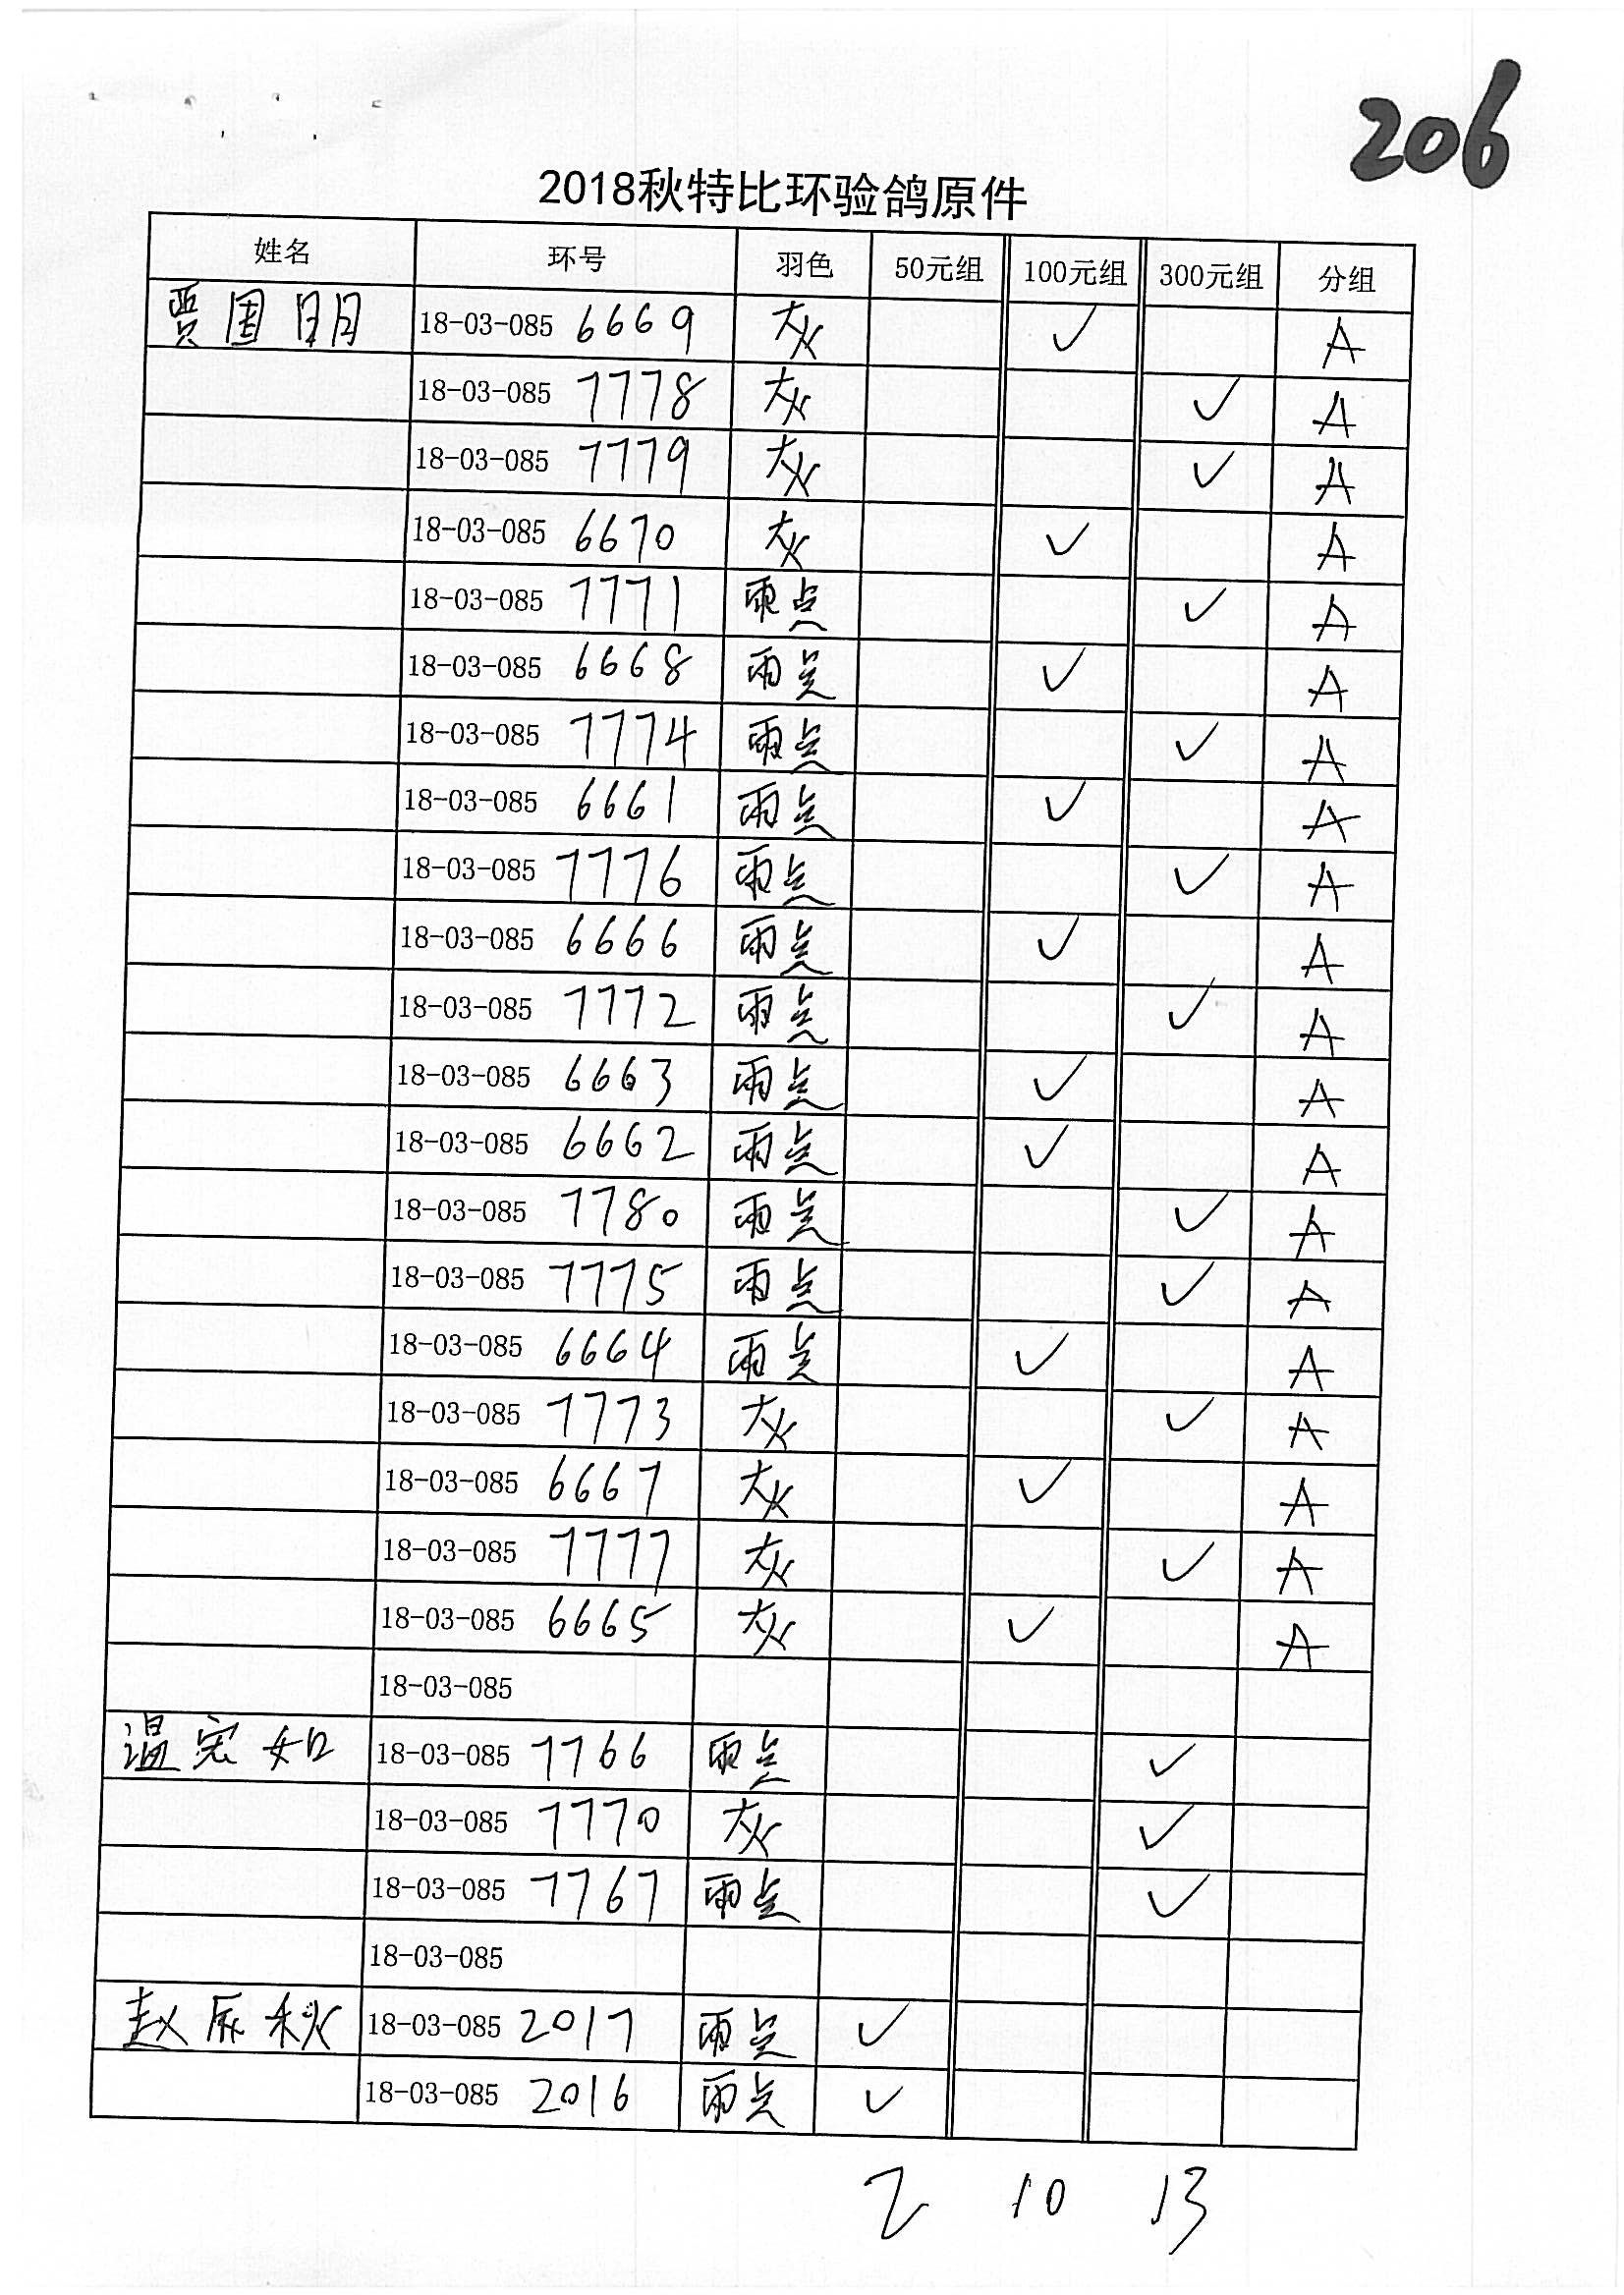 206
2018秋特比环验鸽原件
姓名 环号 羽色 50元组 100元组 300元组 分组
贾国明 18-03-085 6669 灰 ✓ A
18-03-085 7778 灰 ✓ A
18-03-085 7779 灰 ✓ A
18-03-085 6670 灰 ✓ A
18-03-085 7771 雨点 ✓ A
18-03-085 6668 雨点 ✓ A
18-03-085 7774 雨点 ✓ A
18-03-085 6661 雨点 ✓ A
18-03-085 7776 雨点 ✓ A
18-03-085 6666 雨点 ✓ A
18-03-085 7772 雨点 ✓ A
18-03-085 6663 雨点 ✓ A
18-03-085 6662 雨点 ✓ A
18-03-085 7780 雨点 ✓ A
18-03-085 7775 雨点 ✓ A
18-03-085 6664 雨点 ✓ A
18-03-085 7773 灰 ✓ A
18-03-085 6667 灰 ✓ A
18-03-085 7777 灰 ✓ A
18-03-085 6665 灰 ✓ A
18-03-085
温宏如 18-03-085 7766 雨点 ✓
18-03-085 7770 灰 ✓
18-03-085 7767 雨点 ✓
18-03-085
赵 秋 18-03-085 2017 雨点 ✓
18-03-085 2016 雨点 ✓
2 10 13